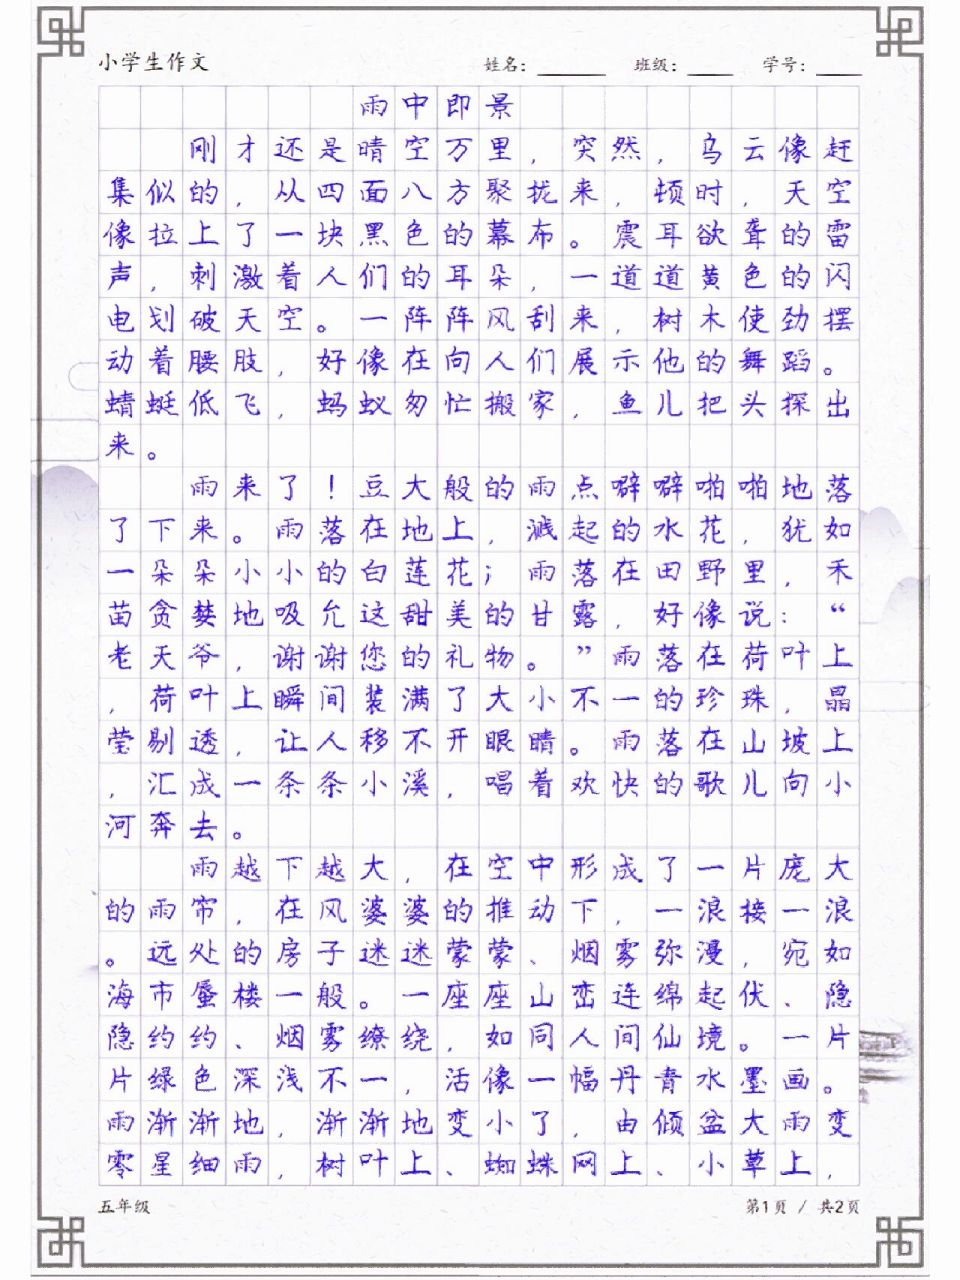 小学生作文 姓名: 班级: 学号:
雨中即景
刚才还是晴空万里，突然，乌云像赶
集似的，从四面八方聚拢来，顿时，天空
像拉上了一块黑色的幕布。震耳欲聋的雷
声，刺激着人们的耳朵，一道道黄色的闪
电划破天空。一阵阵风刮来，树木使劲摆
动着腰肢，好像在向人们展示他的舞蹈。
蜻蜓低飞，蚂蚁匆忙搬家，鱼儿把头探出
来。
雨来了！豆大般的雨点噼噼啪啪地落
了下来。雨落在地上，溅起的水花，犹如
一朵朵小小的白莲花；雨落在田野里，禾
苗贪婪地吸允这甜美的甘露，好像说：“
老天爷，谢谢您的礼物。”雨落在荷叶上
，荷叶上瞬间装满了大小不一的珍珠，晶
莹剔透，让人移不开眼睛。雨落在山坡上
，汇成一条条小溪，唱着欢快的歌儿向小
河奔去。
雨越下越大，在空中形成了一片庞大
的雨帘，在风婆婆的推动下，一浪接一浪
。远处的房子迷迷蒙蒙、烟雾弥漫，宛如
海市蜃楼一般。一座座山峦连绵起伏、隐
隐约约、烟雾缭绕，如同人间仙境。一片
片绿色深浅不一，活像一幅丹青水墨画。
雨渐渐地，渐渐地变小了，由倾盆大雨变
零星细雨，树叶上、蜘蛛网上、小草上，
五年级 第1页 / 共2页